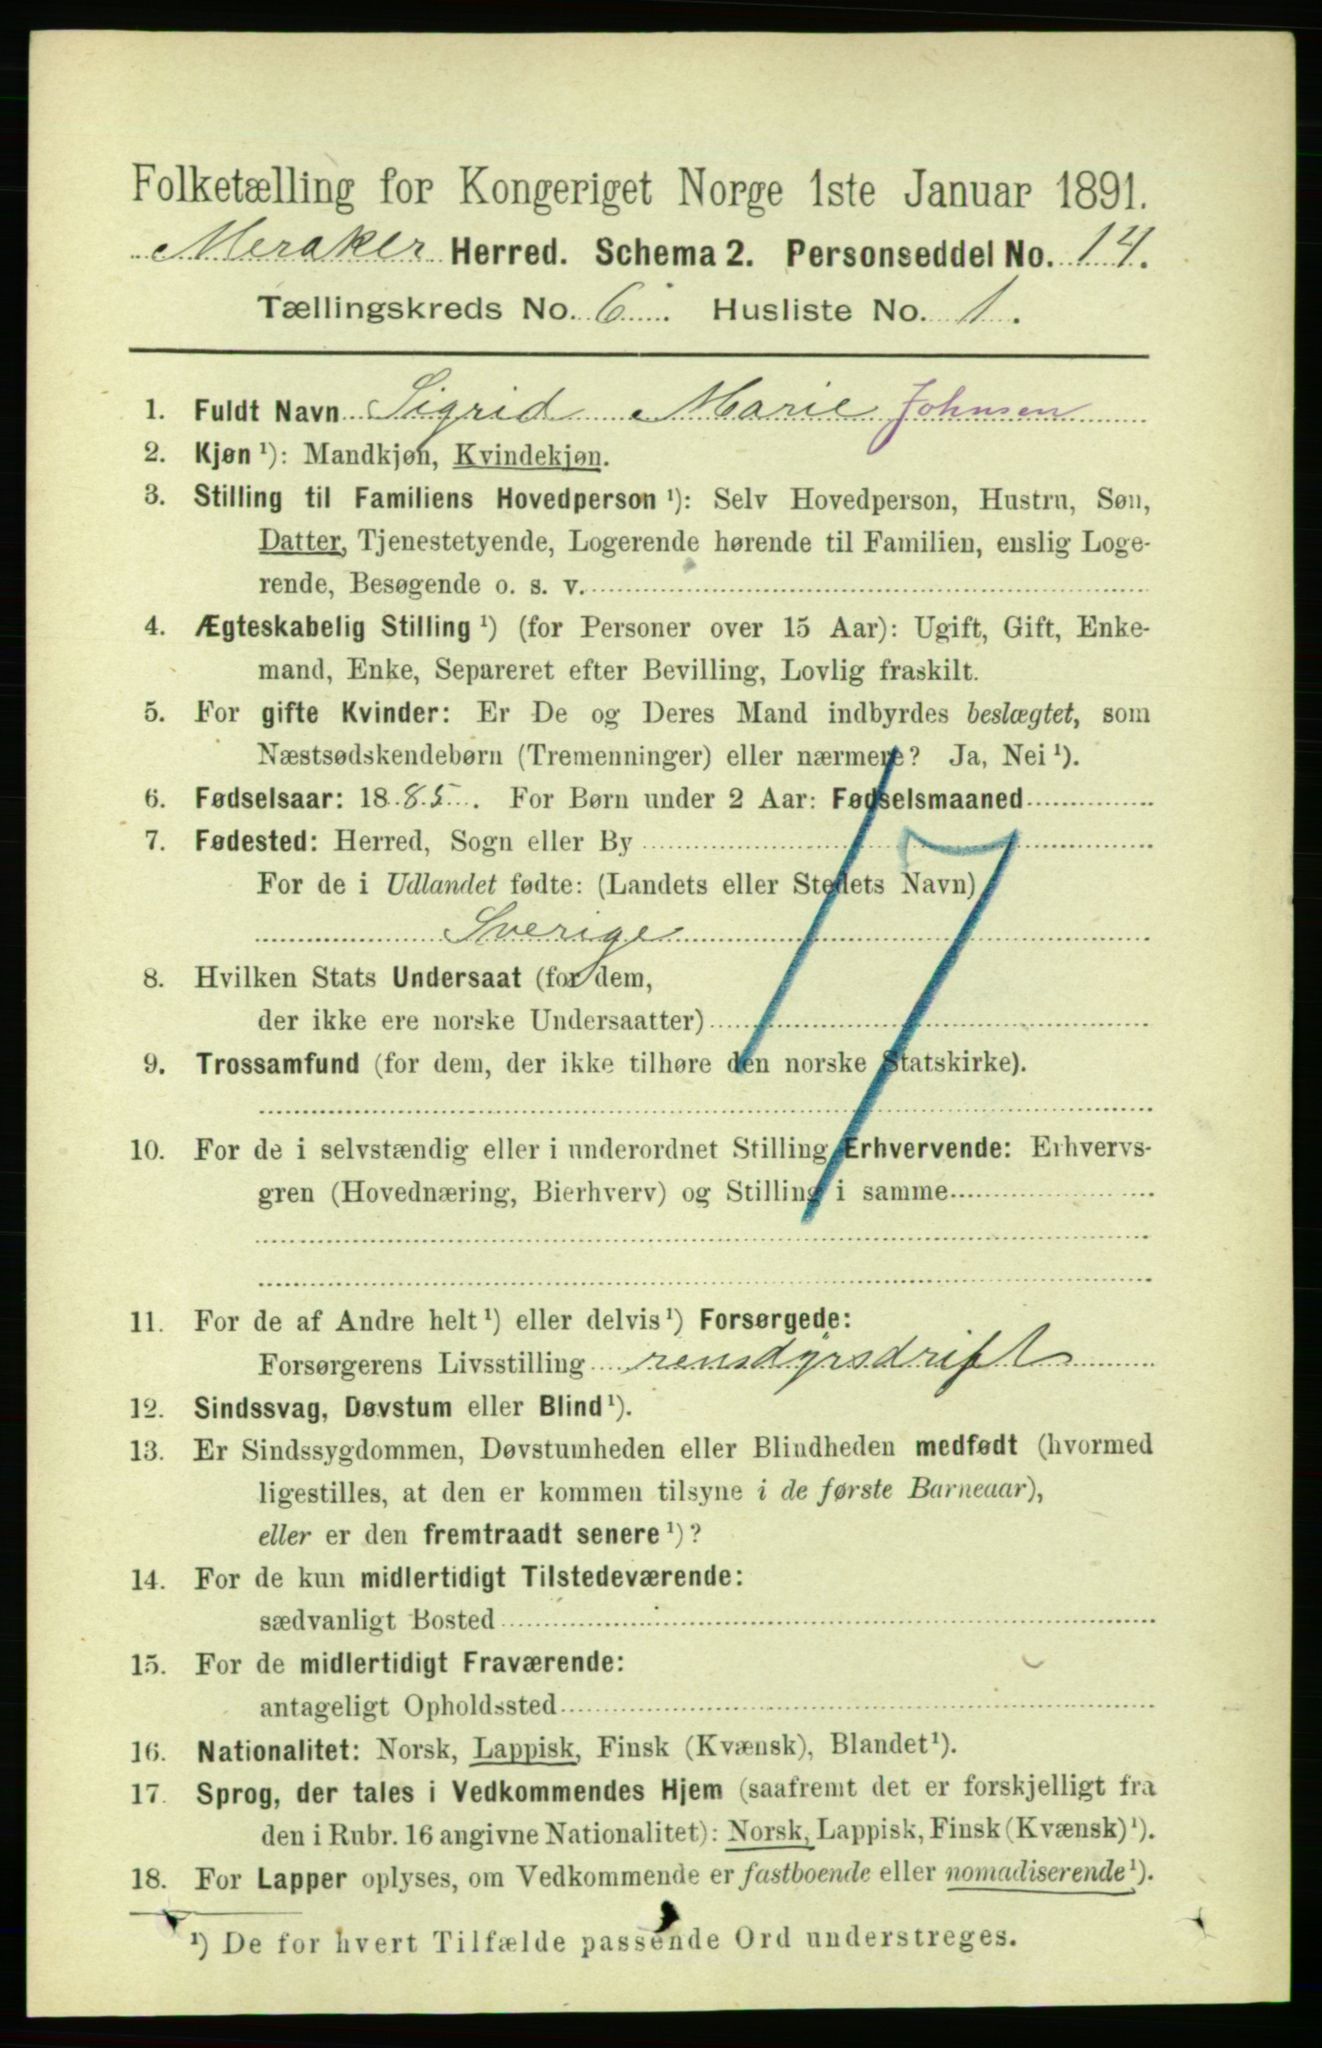 Folketælling for Kongeriget Norge 1ste Januar 1891.
Meraker Herred. Schema 2. Personseddel No. 14.
Tællingskreds No. 6. Husliste No. 1.
1. Fuldt Navn Sigrid Marie Johnsen
2. Kjøn ¹): Mandkjøn, Kvindekjøn.
3. Stilling til Familiens Hovedperson ¹): Selv Hovedperson, Hustru, Søn,
Datter, Tjenestetyende, Logerende hørende til Familien, enslig Loge-
rende, Besøgende o. s. v.
4. Ægteskabelig Stilling ¹) (for Personer over 15 Aar): Ugift, Gift, Enke-
mand, Enke, Separeret efter Bevilling, Lovlig fraskilt.
5. For gifte Kvinder: Er De og Deres Mand indbyrdes beslægtet, som
Næstsødskendebørn (Tremenninger) eller nærmere? Ja, Nei ¹).
6. Fødselsaar: 1885. For Børn under 2 Aar: Fødselsmaaned
7. Fødested: Herred, Sogn eller By
For de i Udlandet fødte: (Landets eller Stedets Navn)
Sverige
8. Hvilken Stats Undersaat (for dem,
der ikke ere norske Undersaatter)
9. Trossamfund (for dem, der ikke tilhøre den norske Statskirke).
10. For de i selvstændig eller i underordnet Stilling Erhvervende: Erhvervs-
gren (Hovednæring, Bierhverv) og Stilling i samme
17
11. For de af Andre helt ¹) eller delvis ¹) Forsørgede:
Forsørgerens Livsstilling rensdyrsdrift
12. Sindssvag, Døvstum eller Blind ¹).
13. Er Sindssygdommen, Døvstumheden eller Blindheden medfødt (hvormed
ligestilles, at den er kommen tilsyne i de første Barneaar),
eller er den fremtraadt senere ¹)?
14. For de kun midlertidigt Tilstedeværende:
sædvanligt Bosted
15. For de midlertidigt Fraværende:
antageligt Opholdssted
16. Nationalitet: Norsk, Lappisk, Finsk (Kvænsk), Blandet ¹).
17. Sprog, der tales i Vedkommendes Hjem (saafremt det er forskjelligt fra
den i Rubr. 16 angivne Nationalitet): Norsk, Lappisk, Finsk (Kvænsk) ¹).
18. For Lapper oplyses, om Vedkommende er fastboende eller nomadiserende ¹).
¹) De for hvert Tilfælde passende Ord understreges.